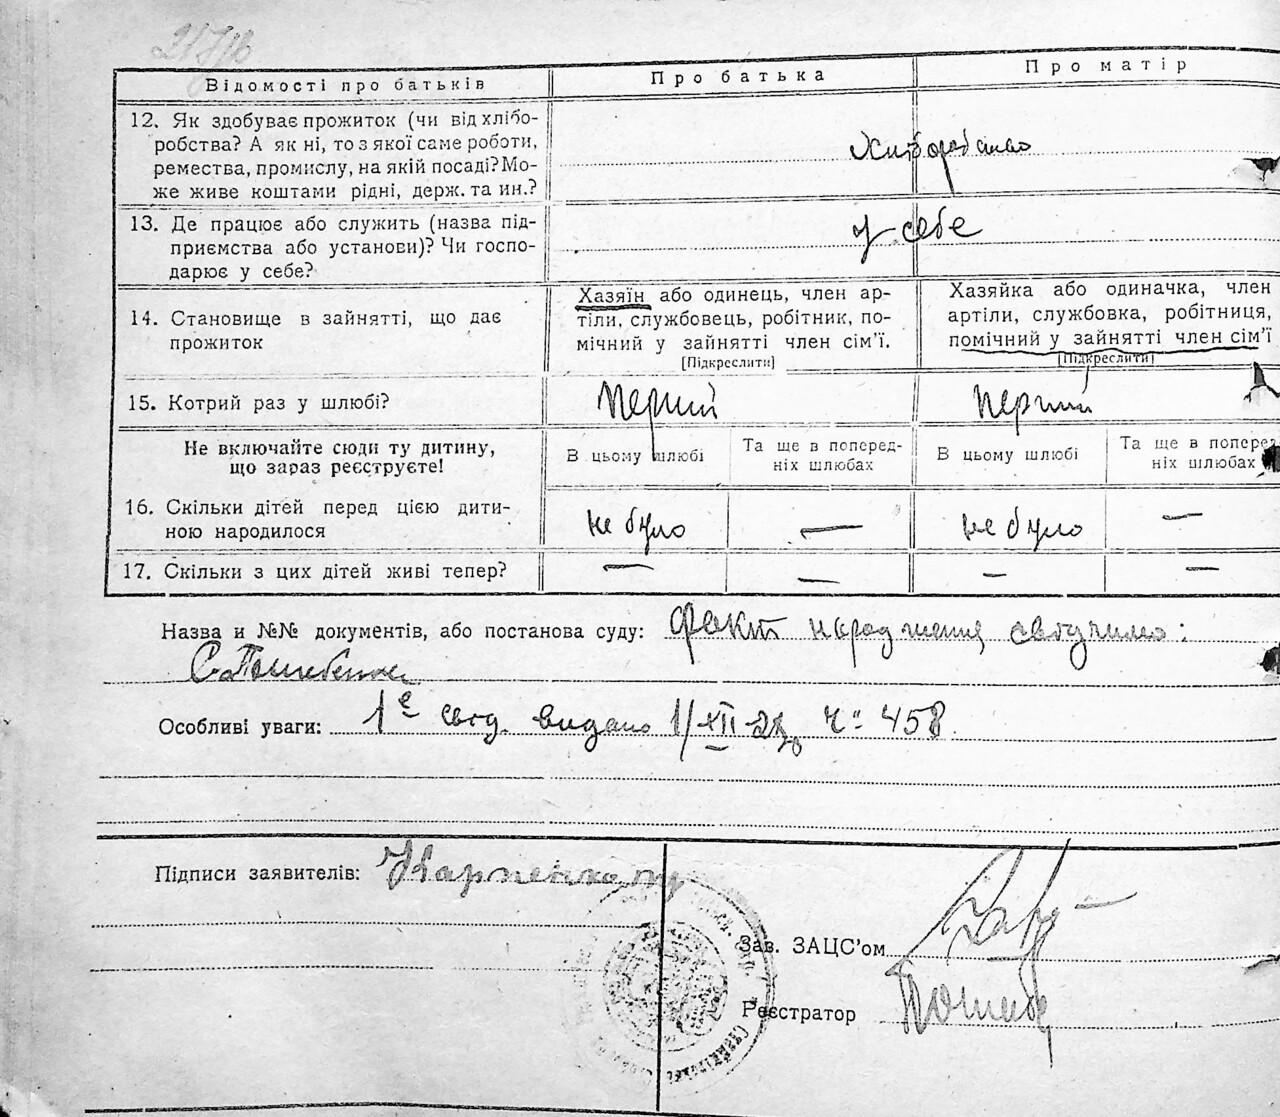 Відомості про батьків
Про батька
Про матір
12. Як здобуває прожиток (чи від хлібо-
робства? А як ні, то з якої саме роботи,
ремества, промислу, на якій посаді? Мо-
же живе коштами рідні, держ. та ин.?
Хліборобство
13. Де працює або служить (назва під-
приємства або установи)? Чи госпо-
дарює у себе?
у себе
14. Становище в зайнятті, що дає
прожиток
Хазяїн або одинець, член ар-
тіли, службовець, робітник, по-
мічний у зайнятті член сім'ї.
[Підкреслити]
Хазяйка або одиначка, член
артіли, службовка, робітниця,
помічний у зайнятті член сім'ї
[Підкреслити]
15. Котрий раз у шлюбі?
перший
перший
Не включайте сюди ту дитину,
що зараз реєструєте!
В цьому шлюбі
Та ще в поперед-
ніх шлюбах
В цьому шлюбі
Та ще в поперед-
ніх шлюбах
16. Скільки дітей перед цією дити-
ною народилося
не було
—
не було
—
17. Скільки з цих дітей живі тепер?
—
—
—
—
Назва и №№ документів, або постанова суду: Факт народження свідчимо:
Особливі уваги: 1е свід. видано 1/XII-28 ч: 458.
Підписи заявителів: Карпенко
Зав. ЗАЦС'ом
Реєстратор